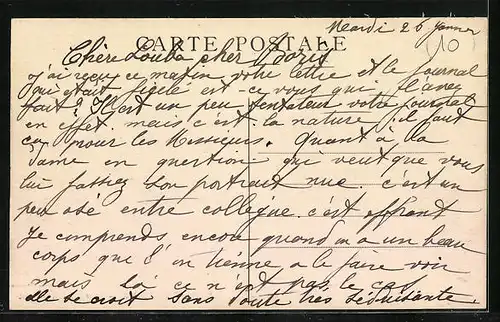 Mardi 26 Janvier
CARTE POSTALE
(10
Chère Louba, cher Boris
j'ai reçu ce matin votre lettre et le journal
qui était ficelé est-ce vous que l'avez
fait? Il est un peu tentateur votre journal
en effet. mais c'est la nature, il faut
ça pour les Messieurs. Quant à la
Dame en question qui veut que vous
lui fassiez son portrait nue. c'est un
peu osé entre collègue. c'est effrant
Je comprends encore quand on a un beau
corps que l'on tienne a le faire voir
mais là ce n'est pas le cas
elle se croit sans doute très séduisante.